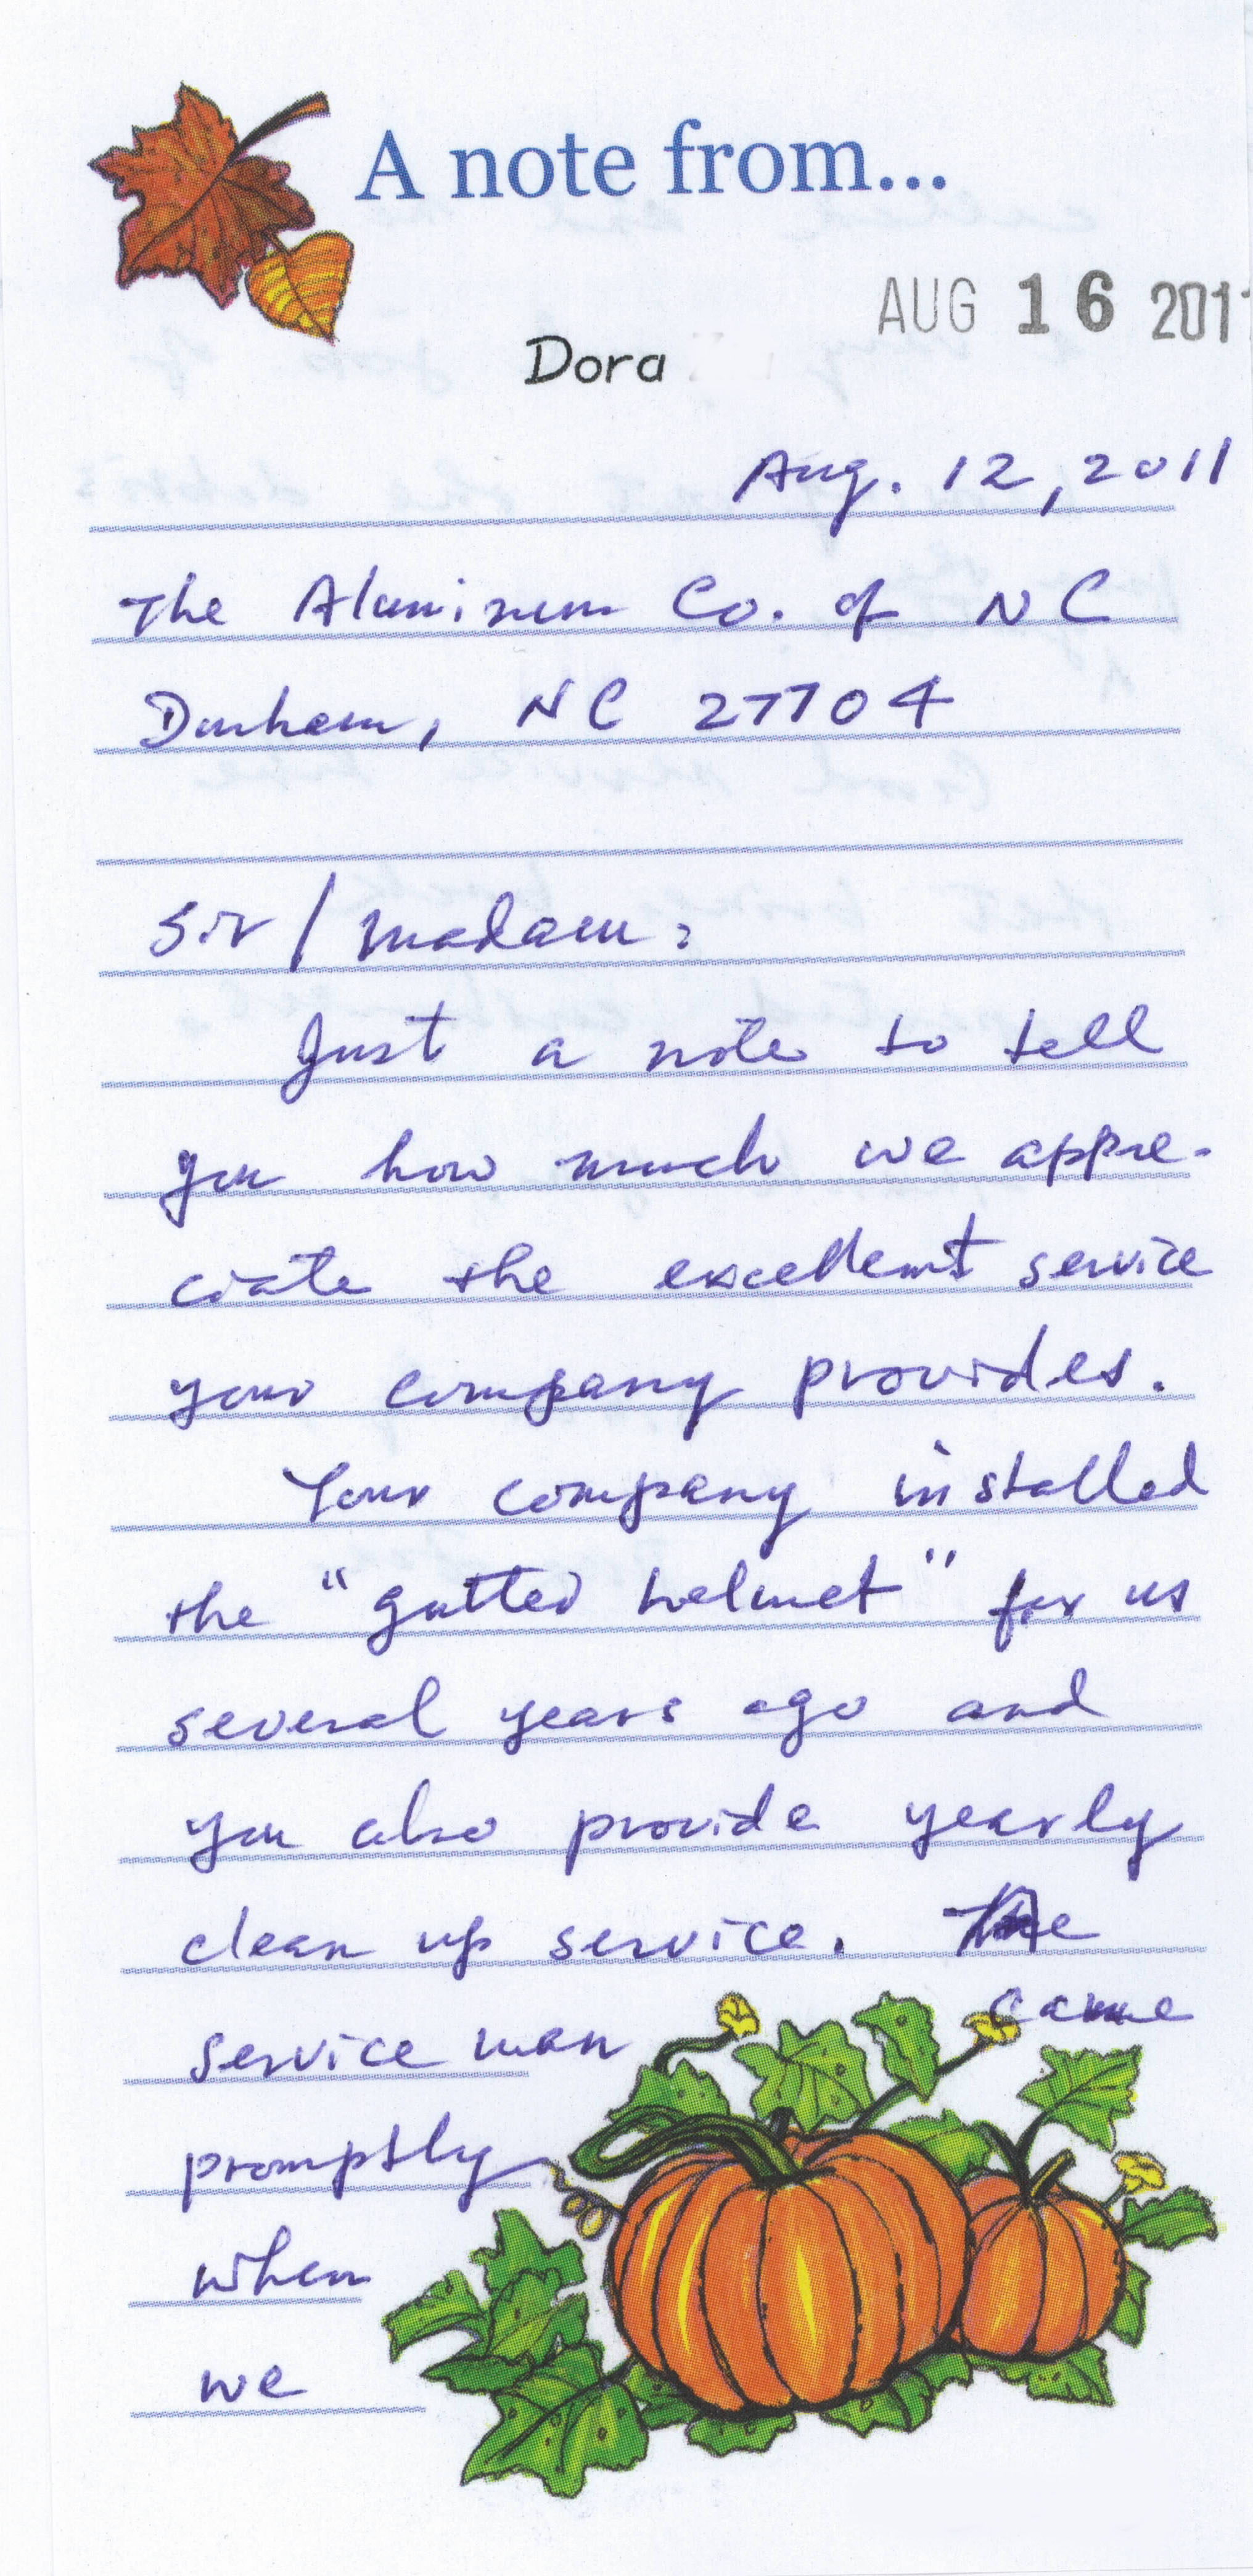 A note from...
AUG 16 2011
Dora
Aug. 12, 2011
The Aluminum Co. of NC
Durham, NC 27704
Sir / Madam:
Just a note to tell
you how much we appre-
ciate the excellent service
your company provides.
Your company installed
the "gutter helmet" for us
several years ago and
you also provide yearly
clean up service. The
service man came
promptly
when
we